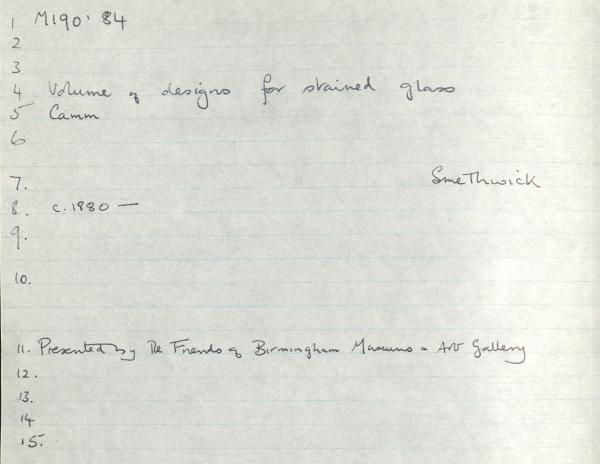 1 M190'84
2
3
4 Volume of designs for stained glass
5 Camm
6
7. Smethwick
8. c.1880 —
9.
10.
11. Presented by The Friends of Birmingham Museums & Art Gallery
12.
13.
14
15.